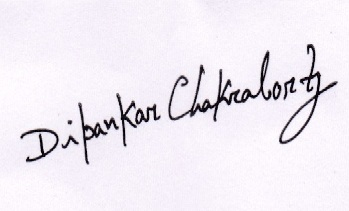 Dipankar Chakraborty